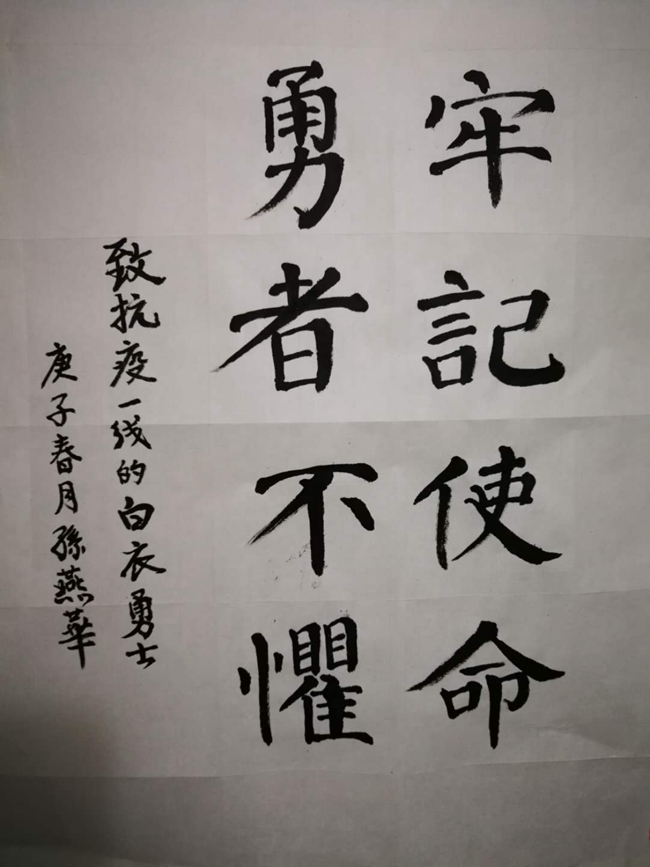 牢記使命
勇者不懼
致抗疫一线的白衣勇士
庚子春月孫燕華